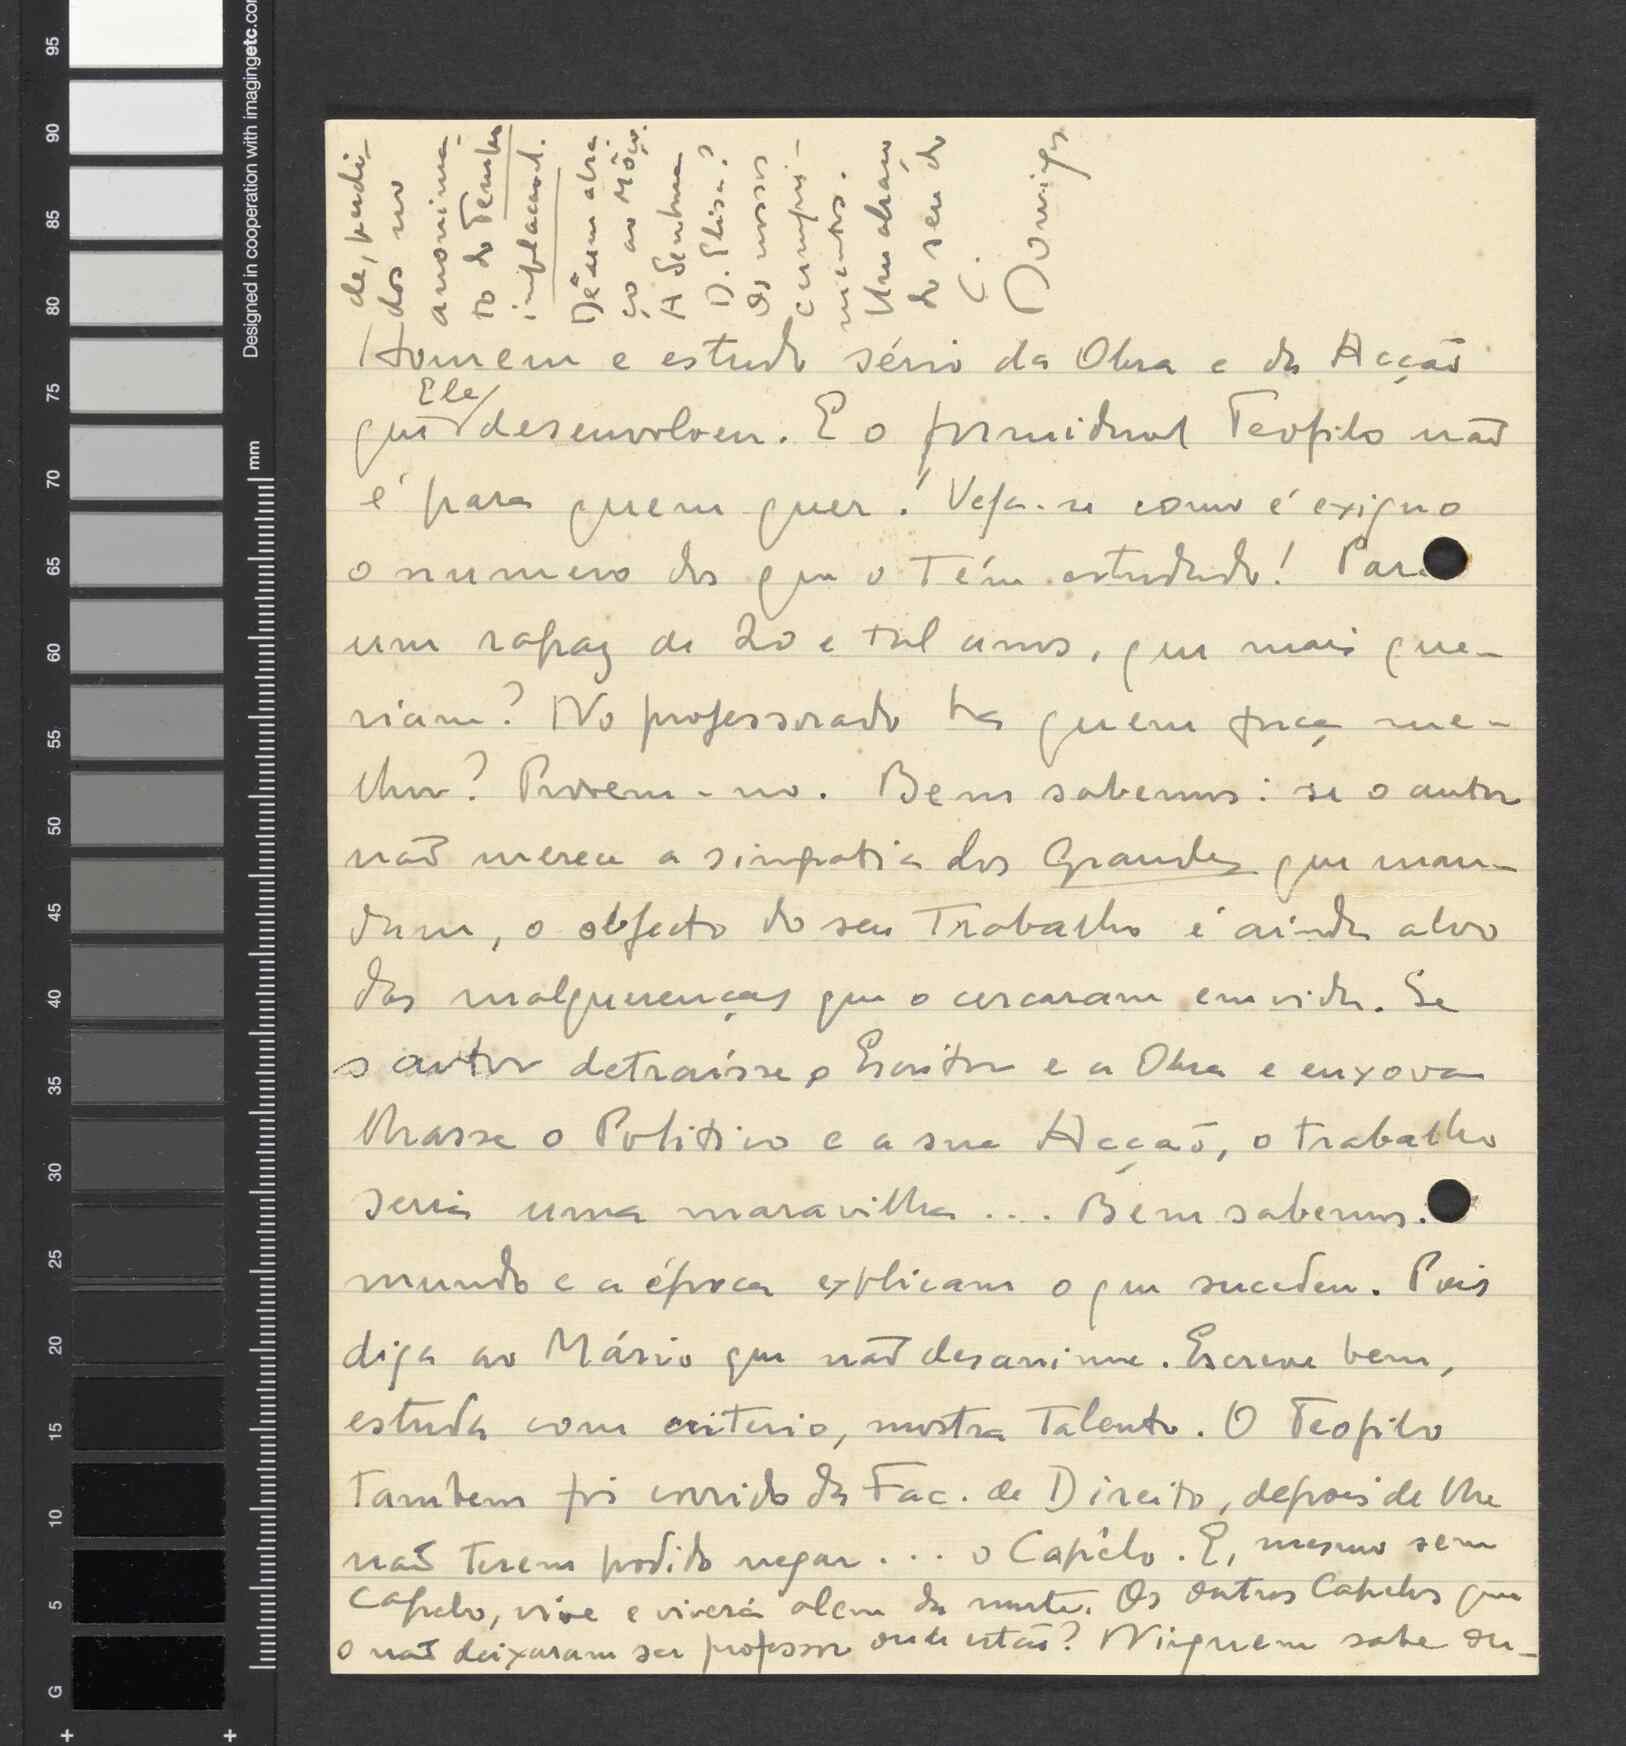 Homem e estudo sério da Obra e da Acção
que Ele desenvolveu. E o formidavel Teofilo não
é para quem quer! Veja-se como é exiguo
o numero dos que o têm estudado! Para
um rapaz de 20 e tal anos, que mais que-
riam? No professorado ha quem faça me-
lhor? Provem-no. Bem sabemos: se o autor
não merece a simpatia dos Grandes que man-
dam, o objecto do seu Trabalho é ainda alvo
das malquerenças que o cercaram em vida. Se
o autor detraísse o Escritor e a Obra e enxova
lhasse o Politico e a sua Acção, o trabalho
seria uma maravilha... Bem sabemos.
mundo e a época explicam o que sucedeu. Pois
diga ao Mário que não desanime. Escreve bem,
estuda com criterio, mostra Talento. O Teofilo
tambem foi corrido da Fac. de Direito, depois de lhe
não terem podido negar... o Capêlo. E, mesmo sem
Capelo, vive e viverá alem da morte. Os outros Capelos que
o não deixaram ser professor onde estão? Ninguem sabe on-
de, perdi-
dos no
anonima-
to do Tempo
implacavel.
Dê um abra-
ço ao Môço.
A Senhora
D. Elisa?
Os nossos
cumpri-
mentos.
Um abraço
do seu do
C.
Domingos
95
90
85
80
75
70
65
60
55
50
45
40
35
30
25
20
15
10
5
G
mm
Designed in cooperation with imagingetc.com